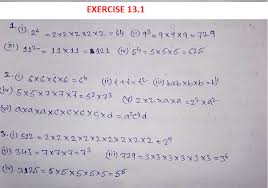 EXERCISE 13.1
1. (i) 2⁶ = 2×2×2×2×2 = 64 (ii) 9³ = 9×9×9 = 729
(iii) 11² = 11×11 = 121 (iv) 5⁴ = 5×5×5 = 625
2. (i) 6×6×6×6 = 6⁴ (ii) t×t = t² (iii) b×b×b×b = b⁴
(iv) 5×5×7×7×7 = 5²×7³ (v) 2×2×a×a = 2²×a²
(vi) a×a×a×c×c×c×c×d = a³c⁴d
3. (i) 512 = 2×2×2×2×2×2×2×2×2 = 2⁹
(ii) 343 = 7×7×7 = 7³ (iii) 729 = 3×3×3×3×3×3 = 3⁶
(iv) 3125 = 5×5×5×5×5 = 5⁵